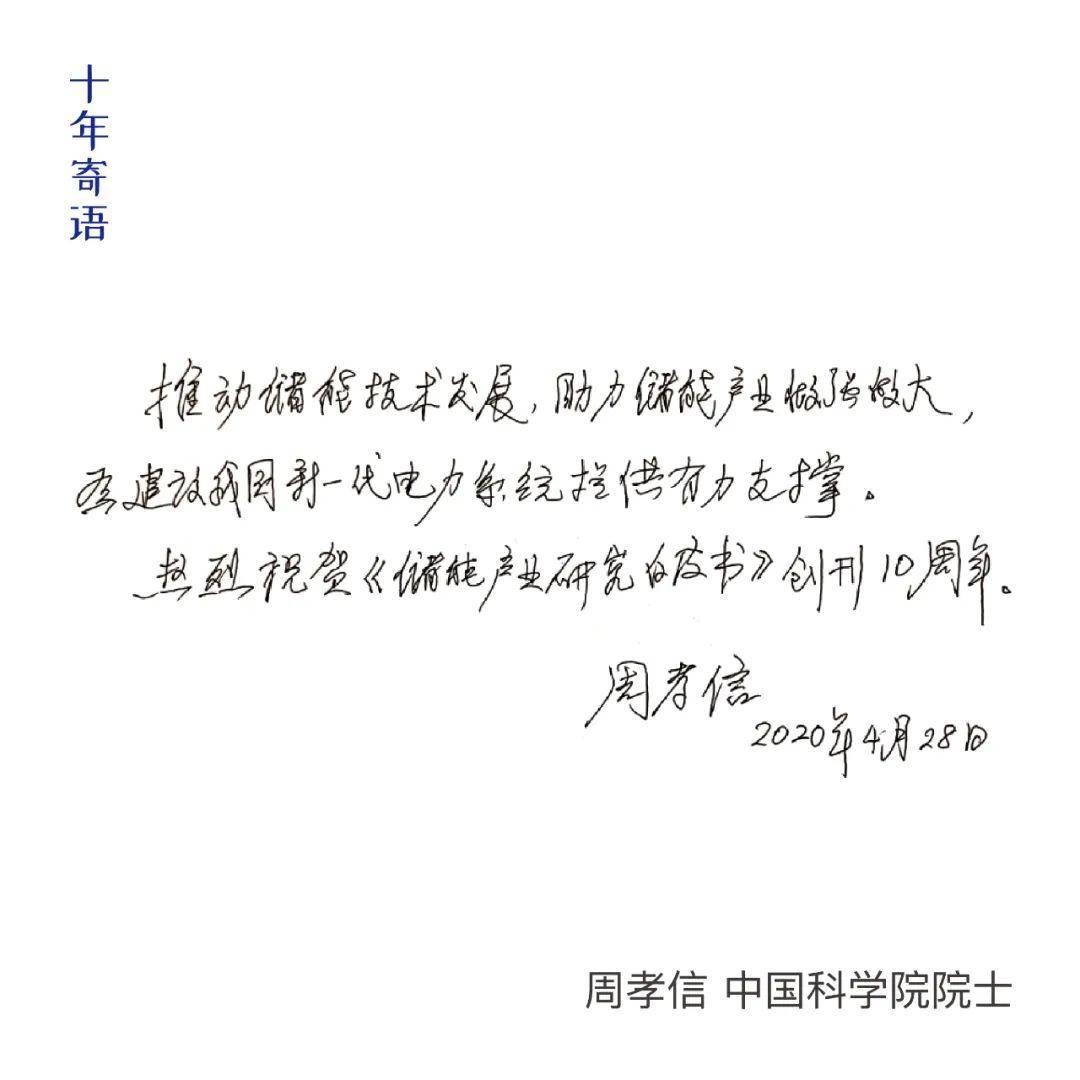 十年寄语
推动储能技术发展,助力储能产业做强做大,
为建设我国新一代电力系统提供有力支撑。
热烈祝贺《储能产业研究白皮书》创刊10周年。
周孝信
2020年4月28日
周孝信 中国科学院院士